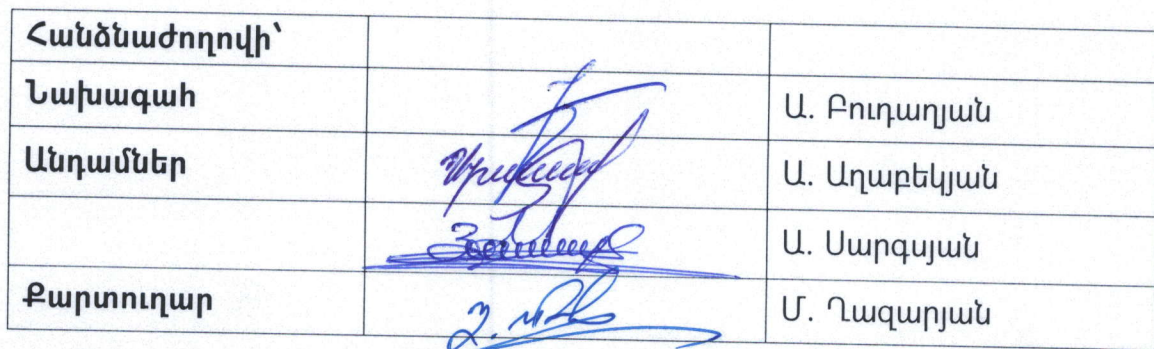 Հանձնաժողովի՝
Նախագահ Ա. Բուդաղյան
Անդամներ Ա. Աղաբեկյան
Ա. Սարգսյան
Քարտուղար Մ. Ղազարյան